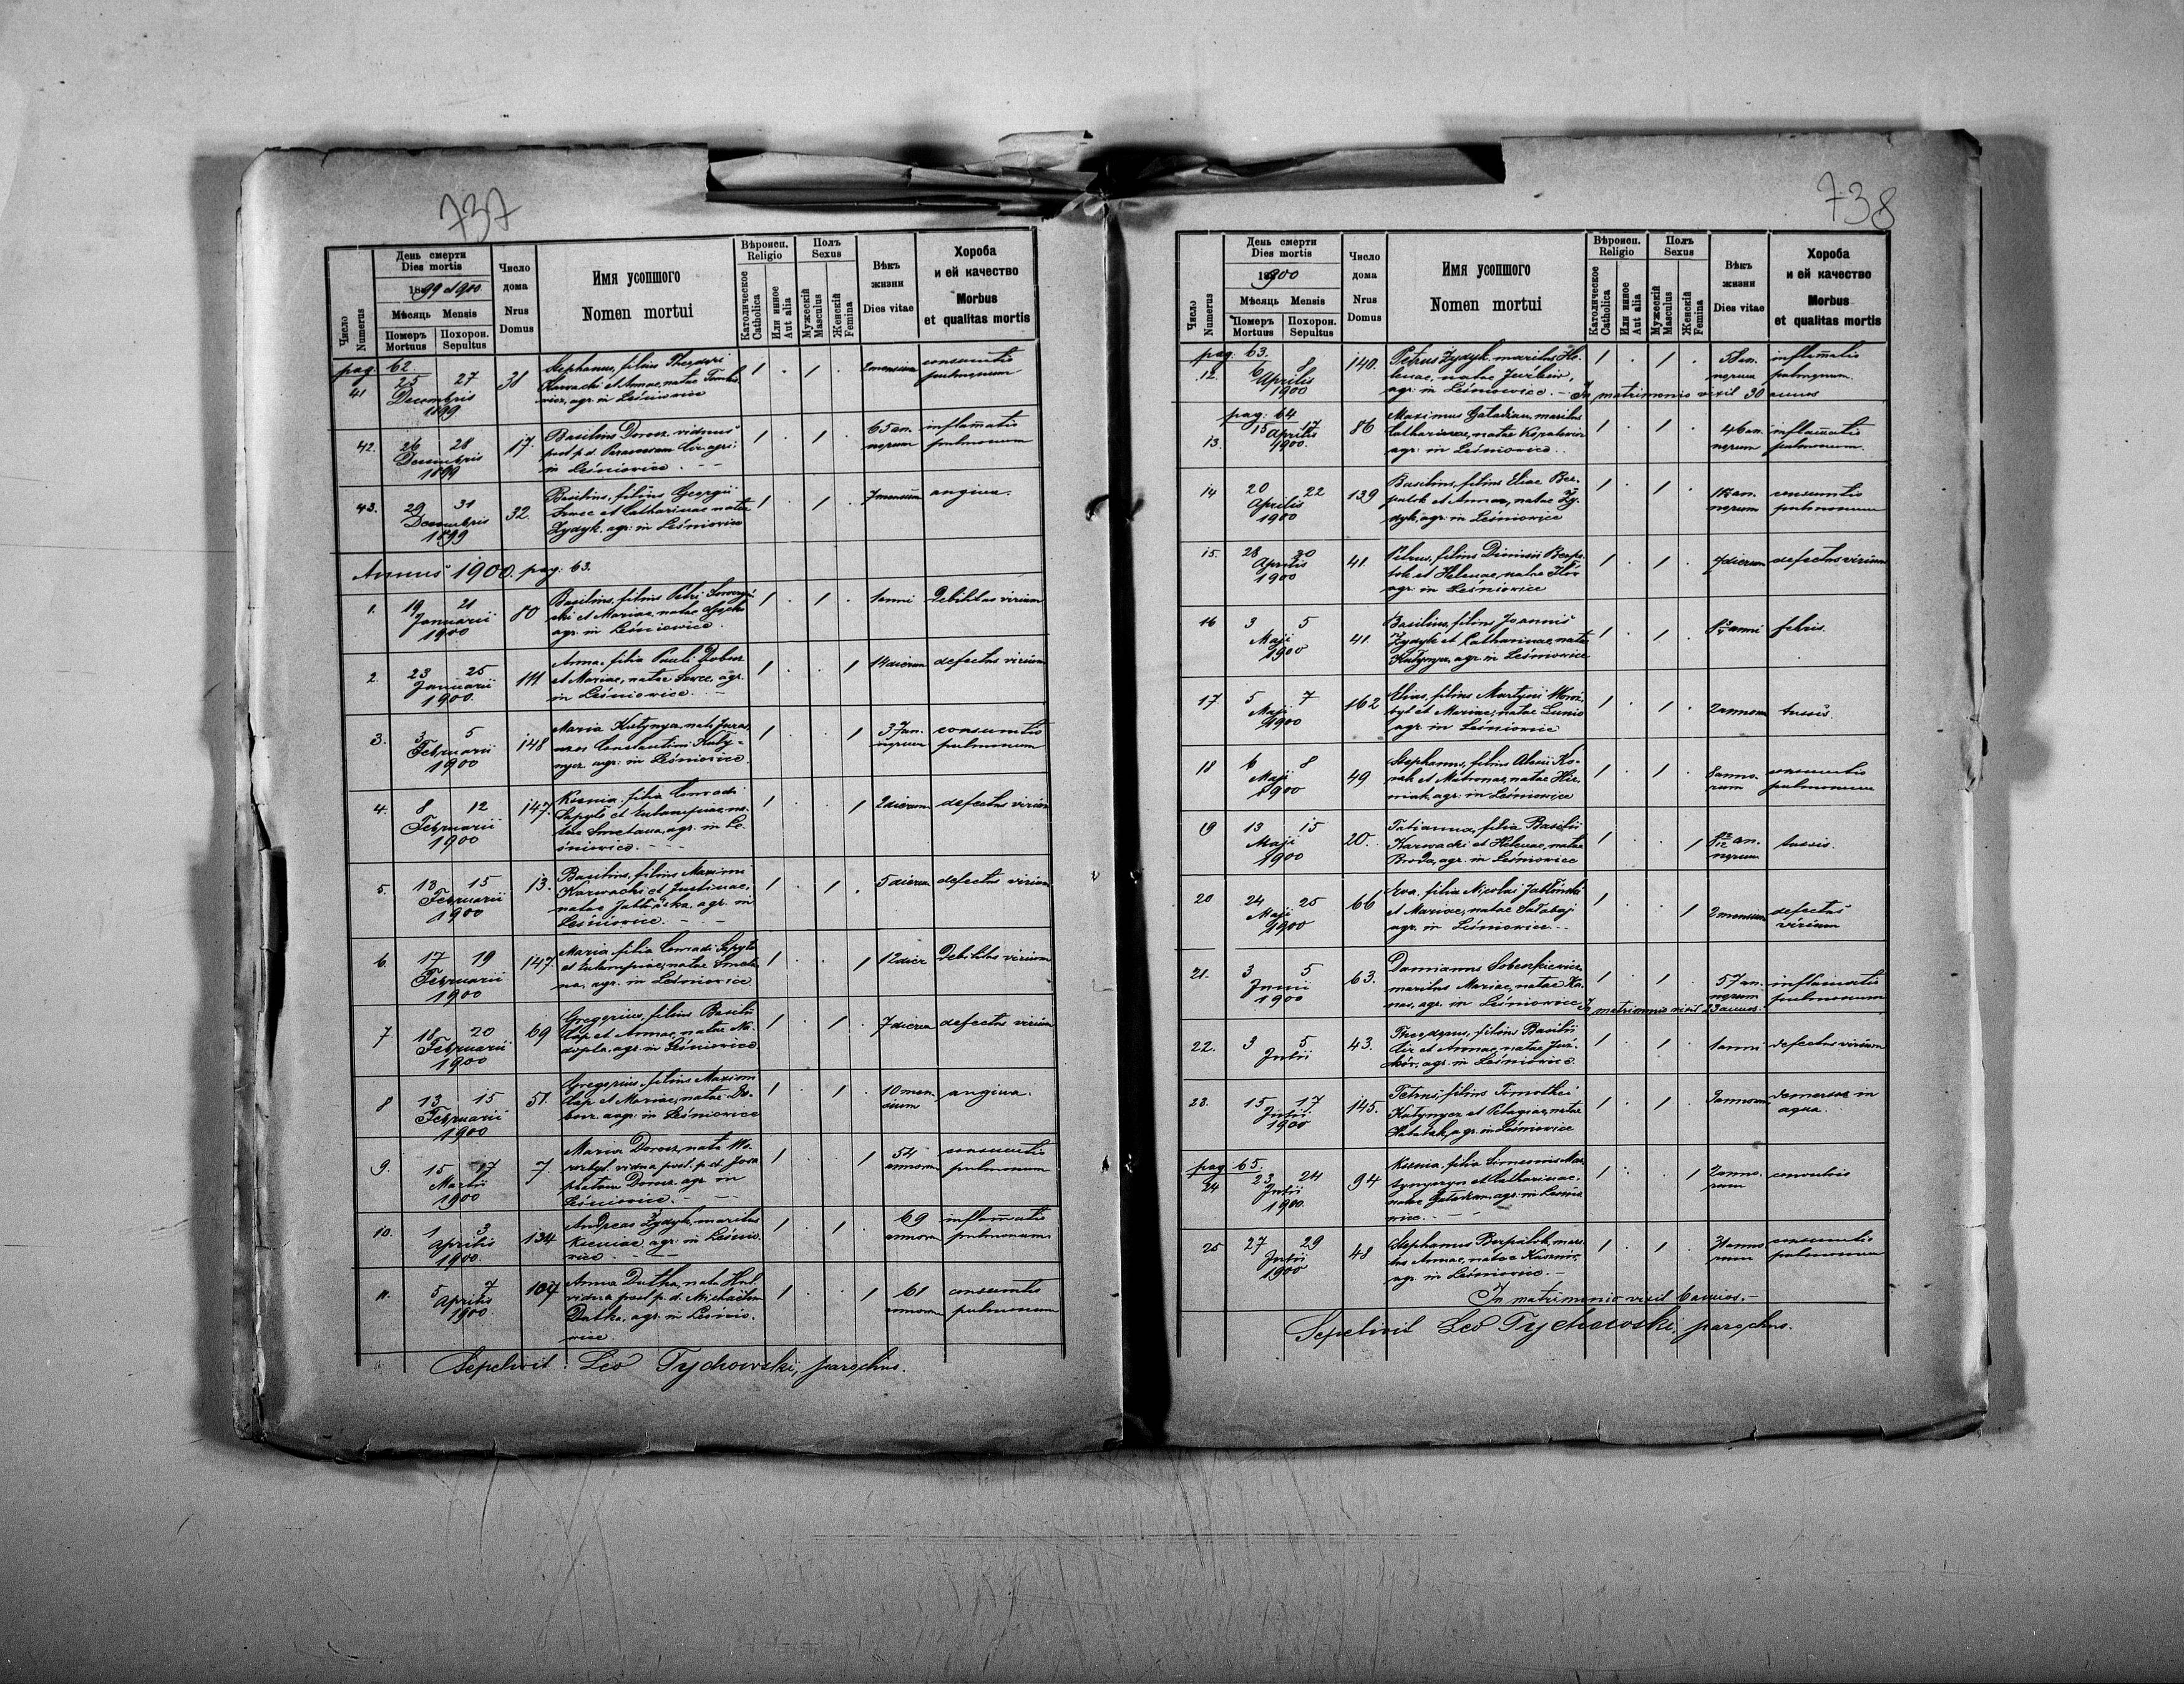 737
Число
Numerus
День смерти
Dies mortis
1899 et 900.
Мѣсяць Mensis
Померъ
Mortuus
Похорон.
Sepultus
Число
дома
Nrus
Domus
Имя усопшого
Nomen mortui
Вѣроисп.
Religio
Католическое
Catholica
Или инное
Aut alia
Полъ
Sexus
Мужескій
Masculus
Женскій
Femina
Вѣкъ
жизни
Dies vitae
Хороба
и ей качество
Morbus
et qualitas mortis
pag. 62.
41 25 27 Decembris 1899
38
Stephanus, filius Theodori
Karwacki et Annae, natae
agr. in Leśniowice
1 . 1 .
2 mensium
consumtio
pulmonum
42. 26 28 Decembris 1899
17.
Basilius Dorosz viduus
post p.d. agr.
in Leśniowice.
1 . 1 .
65 an-
norum
inflamatio
pulmonum
43. 29 31 Decembris 1899
32.
Basilius, filius Georgii
Szwec et Catharinae natae
Zydyk. agr. in Leśniowice
1 . 1 .
7 mensium
angina.
Annus 1900. pag: 63.
1. 19 21 Januarii 1900
80
Basilius, filius Petri
et Mariae, natae
agr. in Leśniowice.
1 . 1 .
1 anni
Debilitas virium
2. 23 25 Januarii 1900.
111
Anna, filia Pauli Dobosz
et Mariae, natae Szwec, agr.
in Leśniowice.
1 . . 1
14 dierum
defectus virium
3. 3 5 Februarii 1900
148
Maria Kutynycz, nata
uxor Constantini Kuty-
nycz. agr. in Leśniowice.
1 . . 1
37 an-
norum
consumtio
pulmonum
4. 8 12 Februarii 1900
147.
Ksenia, filia Conradi
Sapyło et Eutampiae, na-
tae Smetana, agr. in Le-
śniowice.
1 . . 1
2 dierum
defectus virium
5. 13 15 Februarii 1900
13.
Basilius, filius Maximi
Karwacki et Justinae,
natae Jabłońska agr. in
Leśniowice.
1 . 1 .
5 dierum
defectus virium
6. 17 19 Februarii 1900
147.
Maria, filia Conradi Sapyło
et Eutampiae, natae Smeta-
na, agr. in Leśniowice.
1 . . 1
12 dier
Debilitas virium
7. 18 20 Februarii 1900
69
Gregorius, filius Basilii
et Annae, natae Na-
dopta, agr. in Leśniowice.
1 . 1 .
7 dierum
defectus virium
8 13 15 Februarii 1900
51.
Gregorius, filius Maximi
et Mariae, natae Do-
bosz. agr. in Leśniowice
1 . 1 .
10 men-
sium
angina.
9. 15 17 Martii 1900
7.
Maria Dorosz, nata Wo-
robyl, vidua post. p.d. Josa-
phatum Dorosz. agr. in
Leśniowice.
1 . . 1
54
annorum
consumtio
pulmonum
10. 1 3 Aprilis 1900.
134
Andreas Zydyk, maritus
Kseniae agr. in Leśnio-
wice.
1 . 1 .
69
annorum
inflamatio
pulmonum.
11. 5 7 Aprilis 1900
104
Anna Dutka, nata Hul.
vidua post p.d. Michaëlem
Dutka, agr. in Leśnio-
wice.
1 . . 1
61
annorum
consumtio
pulmonum
Sepelivit: Leo Tychowski, parochus.
738
Число
Numerus
День смерти
Dies mortis
1900
Мѣсяць Mensis
Померъ
Mortuus
Похорон.
Sepultus
Число
дома
Nrus
Domus
Имя усопшого
Nomen mortui
Вѣроисп.
Religio
Католическое
Catholica
Или инное
Aut alia
Полъ
Sexus
Мужескій
Masculus
Женскій
Femina
Вѣкъ
жизни
Dies vitae
Хороба
и ей качество
Morbus
et qualitas mortis
pag: 63.
12. 6 8 Aprilis 1900
140.
Petrus Zydyk, maritus He-
lenae, natae
agr. in Leśniowice. - In matrimonio vixit 30 annos
1 . 1 .
58 an-
norum
inflamatio
pulmonum.
pag: 64
13. 15 17 Aprilis 1900.
86
Maximus Gaładian, maritus
Catharinae, natae
agr. in Leśniowice.
1 . 1 .
46 an-
norum
inflamatio
pulmonum.
14 20 22 Aprilis 1900
139
Basilius, filius Eliae Ber-
patok et Annae, natae Zy-
dyk, agr. in Leśniowice
1 . 1 .
an-
norum
consumtio
pulmonum
15. 28 30 Aprilis 1900
41.
Petrus, filius Dionisii Berpa-
tok et Helenae, natae
agr. in Leśniowice
1 . 1 .
7 dierum
defectus virium
16 3 5 Maji 1900
41.
Basilius, filius Joannis
Zydyk et Catharinae, natae
Kutynycz, agr. in Leśniowice
1 . 1 .
anni
febris.
17 5 7 Maji 1900
162
Elias, filius Martyni Woro-
byl et Mariae, natae Lunio
agr. in Leśniowice
1 . 1 .
2 annorum
tussis.
18 6 8 Maji 1900
49
Stephanus, filius Alexii Ko-
wak et Matronae, natae
agr. in Leśniowice
1 . 1 .
8 anno-
rum
consumtio
pulmonum
19 13 15 Maji 1900
20.
Tatianna, filia Basilii
Karwacki et Helenae, natae
Broda, agr. in Leśniowice
1 . . 1
an-
norum
tussis.
20 24 25 Maji 1900
66
Eva, filia Nicolai Jabłoński
et Mariae, natae Sałabaj
agr. in Leśniowice.
1 . . 1
2 mensium
defectus
virium
21. 3 5 Junii 1900
63.
Damianus Sobeszkiewicz
maritus Mariae, natae Ka-
nas, agr. in Leśniowice. In matrimonio vixit 23 annos.
1 . 1 .
57 an-
norum
inflamatio
pulmonum
22. 3 5 Julii
43.
Theodorus, filius Basilii
et Annae, natae
agr. in Leśniowice.
1 . 1 .
1 anni
defectus virium
23. 15 17 Julii 1900
145.
Petrus, filius Timothei
Kutynycz et Pelagiae, natae
agr. in Leśniowice
1 . 1 .
2 annorum
demersus in
aqua.
pag: 65.
24 23 24 Julii 1900.
94
Ksenia, filia Simeonis
et Catharinae,
natae Gaładian, agr. in Leśnio-
wice.
1 . . 1
2 anno-
rum
convulsio
25 27 29 Julii 1900
48
Stephanus Berpatok, mari-
tus Annae, natae
agr. in Leśniowice.
1 . 1 .
31 anno-
rum
consumtio
pulmonum
In matrimonio vixit 6 annos.
Sepelivit Leo Tychowski, parochus.